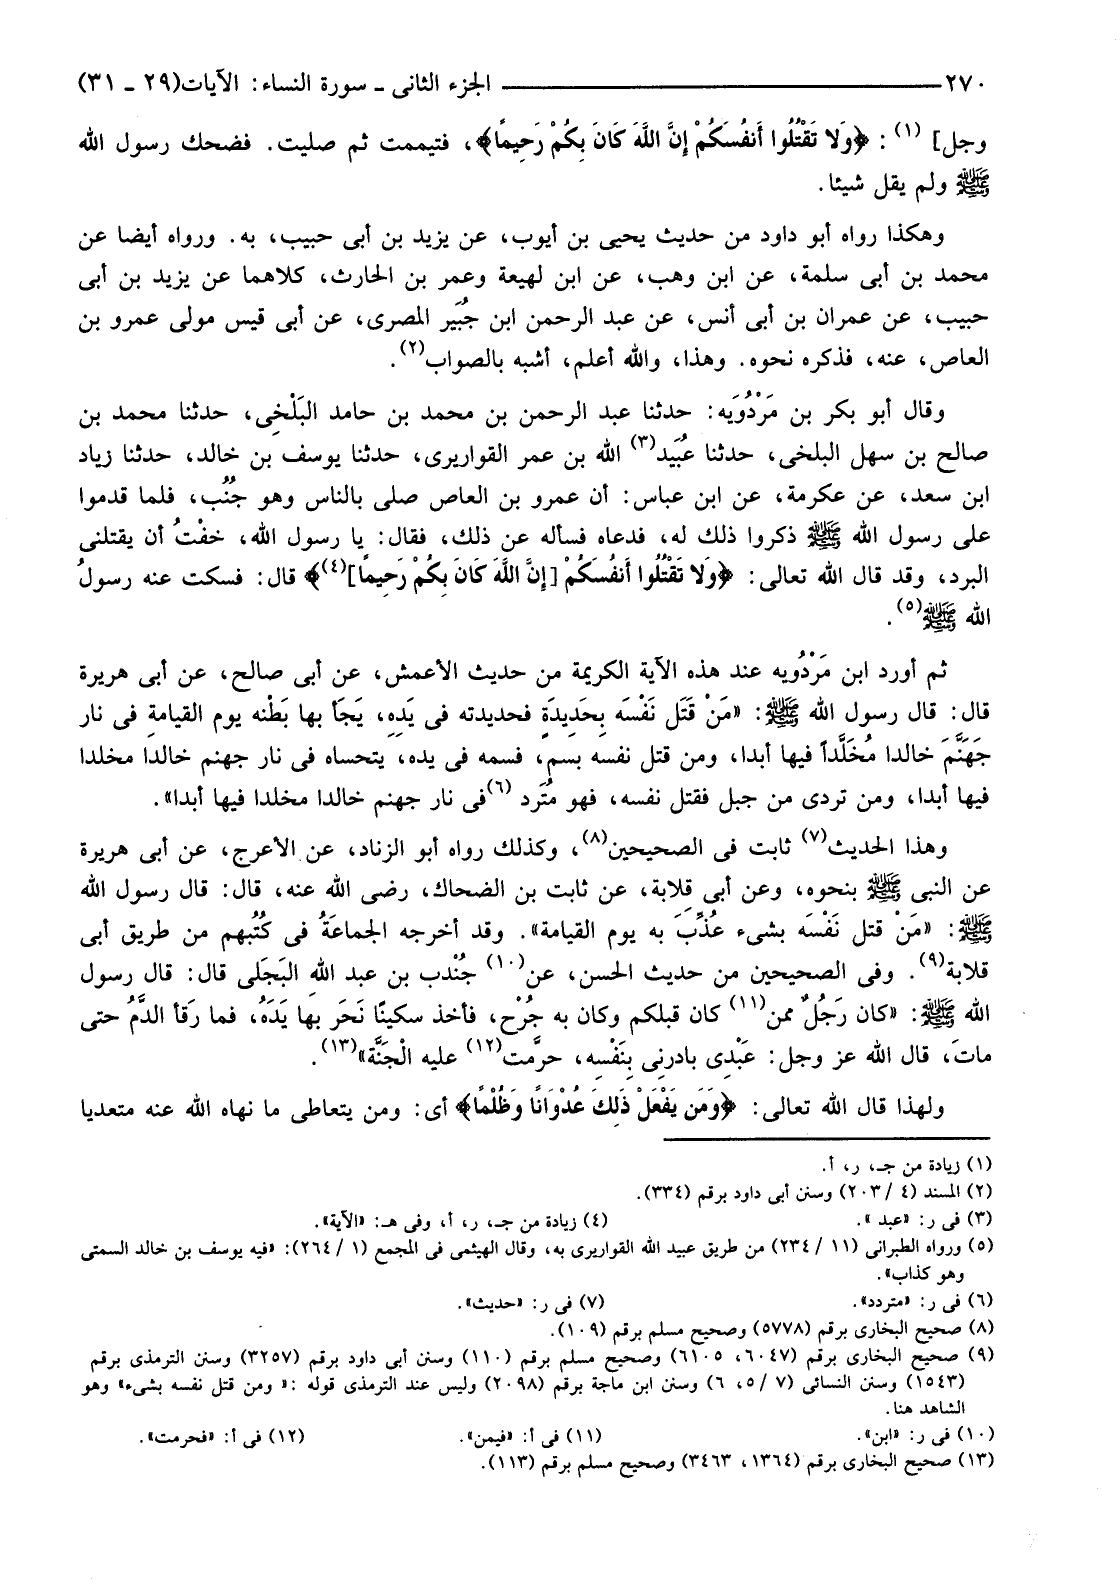 ٢٧٠ ــــــــــــــــــــــــــــــــ الجزء الثانى ـ سورة النساء: الآيات(٢٩ ـ ٣١)
وجل] (١) : ﴿وَلا تَقْتُلُوا أَنفُسَكُمْ إِنَّ اللَّهَ كَانَ بِكُمْ رَحِيمًا﴾، فتيممت ثم صليت. فضحك رسول الله
ﷺ ولم يقل شيئا.
وهكذا رواه أبو داود من حديث يحيى بن أيوب، عن يزيد بن أبى حبيب، به. ورواه أيضا عن
محمد بن أبى سلمة، عن ابن وهب، عن ابن لهيعة وعمر بن الحارث، كلاهما عن يزيد بن أبى
حبيب، عن عمران بن أبى أنس، عن عبد الرحمن ابن جُبَير المصرى، عن أبى قيس مولى عمرو بن
العاص، عنه، فذكره نحوه. وهذا، والله أعلم، أشبه بالصواب(٢).
وقال أبو بكر بن مَرْدُوَيه: حدثنا عبد الرحمن بن محمد بن حامد البَلْخِى، حدثنا محمد بن
صالح بن سهل البلخى، حدثنا عُبَيد(٣) الله بن عمر القواريرى، حدثنا يوسف بن خالد، حدثنا زياد
ابن سعد، عن عكرمة، عن ابن عباس: أن عمرو بن العاص صلى بالناس وهو جُنُب، فلما قدموا
على رسول الله ﷺ ذكروا ذلك له، فدعاه فسأله عن ذلك، فقال: يا رسول الله، خفْتُ أن يقتلنى
البرد، وقد قال الله تعالى: ﴿وَلا تَقْتُلُوا أَنفُسَكُمْ [إِنَّ اللَّهَ كَانَ بِكُمْ رَحِيمًا](٤)﴾ قال: فسكت عنه رسولُ
الله ﷺ(٥).
ثم أورد ابن مَرْدُويه عند هذه الآية الكريمة من حديث الأعمش، عن أبى صالح، عن أبى هريرة
قال: قال رسول الله ﷺ: «مَنْ قَتَل نَفْسَه بِحَدِيدَةٍ فحديدته فى يَدِهِ، يَجَأ بها بَطْنه يوم القيامةِ فى نار
جَهَنَّمَ خالدا مُخَلَّداً فيها أبدا، ومن قتل نفسه بسم، فسمه فى يده، يتحساه فى نار جهنم خالدا مخلدا
فيها أبدا، ومن تردى من جبل فقتل نفسه، فهو مُتَرد (٦)فى نار جهنم خالدا مخلدا فيها أبدا».
وهذا الحديث(٧) ثابت فى الصحيحين(٨)، وكذلك رواه أبو الزناد، عن الأعرج، عن أبى هريرة
عن النبى ﷺ بنحوه، وعن أبى قِلابة، عن ثابت بن الضحاك، رضى الله عنه، قال: قال رسول الله
ﷺ: «مَنْ قتل نَفْسَه بشىء عُذِّبَ به يوم القيامة». وقد أخرجه الجماعَةُ فى كُتُبهم من طريق أبى
قلابة(٩). وفى الصحيحين من حديث الحسن، عن(١٠) جُنْدب بن عبد الله البَجَلى قال: قال رسول
الله ﷺ: «كان رَجُلٌ ممن(١١) كان قبلكم وكان به جُرْح، فأخذ سكينًا نَحَر بها يَدَهُ، فما رَقأ الدَّمُ حتى
ماتَ، قال الله عز وجل: عَبْدِى بادرنِى بِنَفْسِه، حرَّمت(١٢) عليه الْجَنَّة»(١٣).
ولهذا قال الله تعالى: ﴿وَمَن يَفْعَلْ ذَلِكَ عُدْوَانًا وَظُلْمًا﴾ أى: ومن يتعاطى ما نهاه الله عنه متعديا
(١) زيادة من جـ، ر، أ.
(٢) المسند (٤ /٢٠٣) وسنن أبى داود برقم (٣٣٤).
(٣) فى ر: «عبد ». (٤) زيادة من جـ، ر، أ، وفى هـ: «الآية».
(٥) ورواه الطبرانى (١١ /٢٣٤) من طريق عبيد الله القواريرى به، وقال الهيثمى فى المجمع (١ /٢٦٤): «فيه يوسف بن خالد السمتى
وهو كذاب».
(٦) فى ر: «متردد». (٧) فى ر: «حديث».
(٨) صحيح البخارى برقم (٥٧٧٨) وصحيح مسلم برقم (١٠٩).
(٩) صحيح البخارى برقم (٦٠٤٧، ٦١٠٥) وصحيح مسلم برقم (١١٠) وسنن أبى داود برقم (٣٢٥٧) وسنن الترمذى برقم
(١٥٤٣) وسنن النسائى (٧ /٥، ٦) وسنن ابن ماجة برقم (٢٠٩٨) وليس عند الترمذى قوله :« ومن قتل نفسه بشىء» وهو
الشاهد هنا.
(١٠) فى ر: «ابن». (١١) فى أ: «فيمن». (١٢) فى أ: «فحرمت».
(١٣) صحيح البخارى برقم (١٣٦٤، ٣٤٦٣) وصحيح مسلم برقم (١١٣).